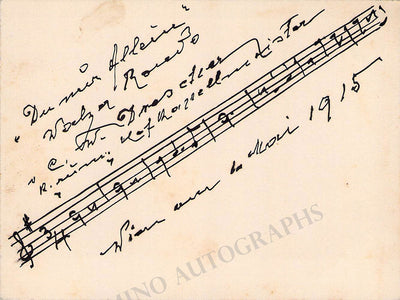 "Du nur Allein"
Walzer Rondo
C. W. Drescher
K. rumän. Hofkapellmeister
3
4
Wien am 6 Mai 1915
MINO AUTOGRAPHS